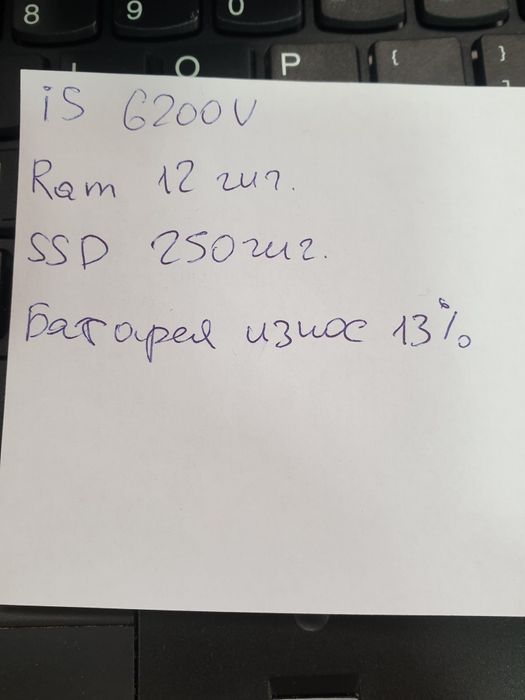 8 9 0
O P { }
i5 6200U
Ram 12 гиг.
SSD 250 гиг.
Батарея износ 13%